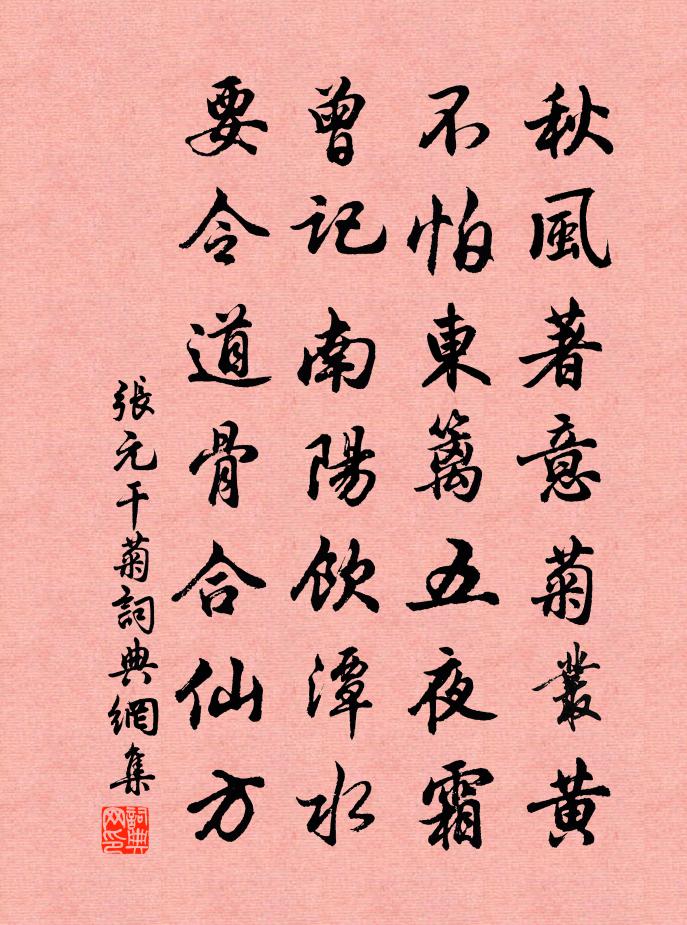 秋風著意菊叢黄
不怕東籬五夜霜
曾記南陽飲潭水
要令道骨合仙方
張元干菊詞典網集
詞典网印